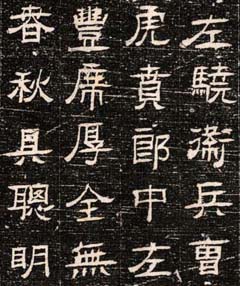 左驍衛兵曹
虎賁郎中左
豐席厚全無
春秋具聰明